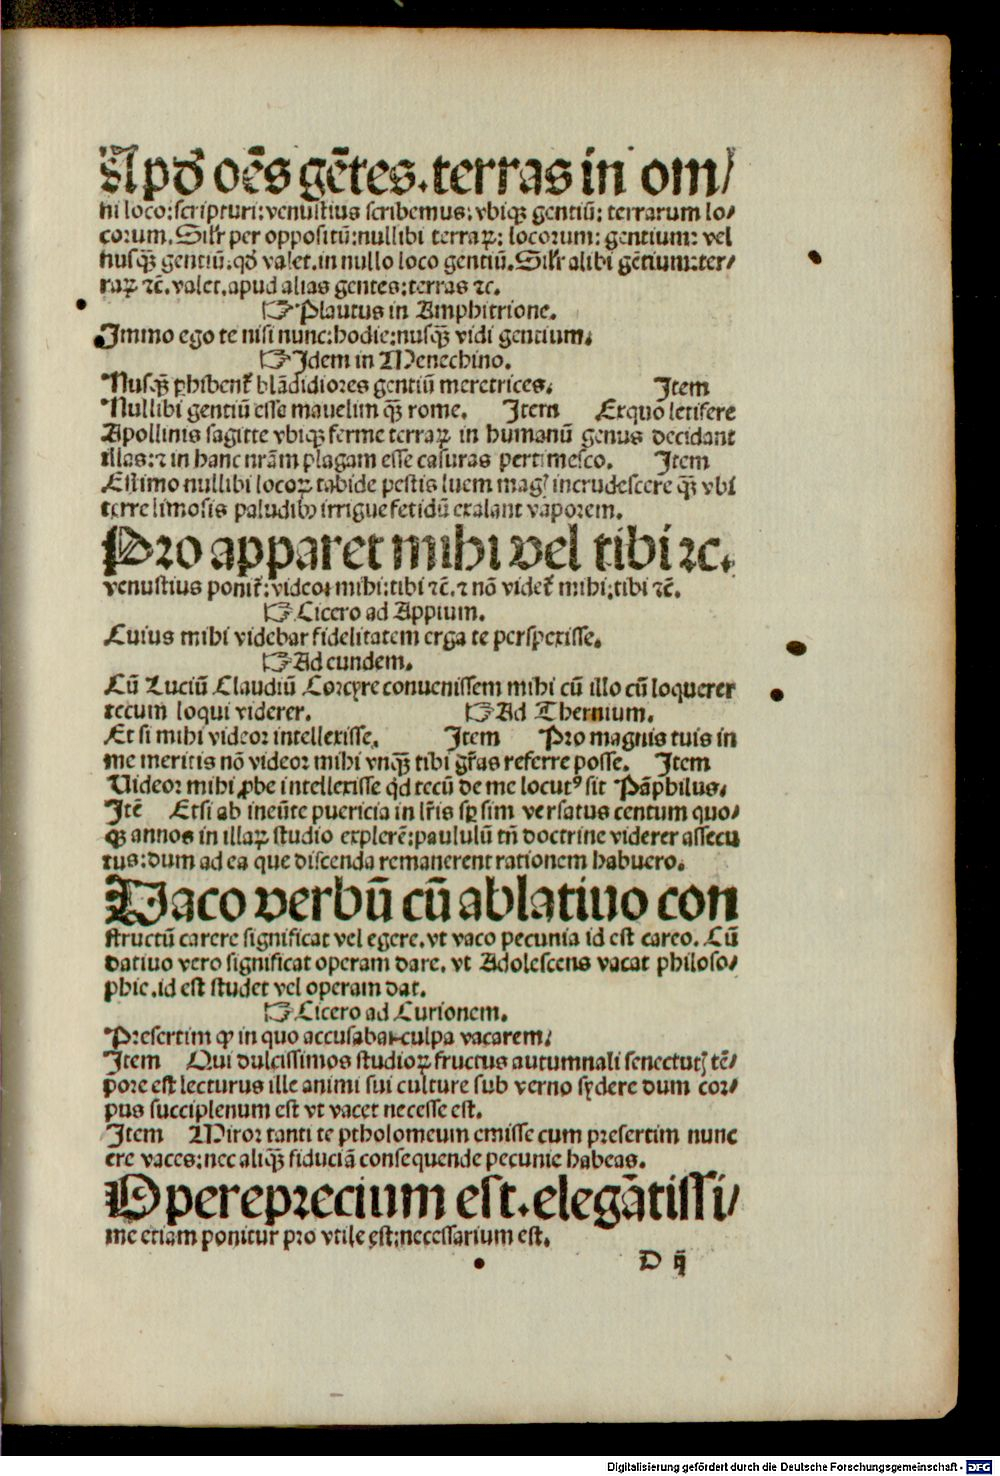 Apd̄ oēs gētes.terras in om/
ni loco:scripturi:venustius scribemus:vbiqꝫ gentiū: terrarum lo/
corum. Silr̄ per oppositū:nullibi terraꝝ: locorum: gentium: vel
nusqꝫ̄ gentiū.qd̄ valet.in nullo loco gentiū. Silr̄ alibi gētium:ter/
raꝝ ⁊c̄. valet.apud alias gentes:terras ⁊c.
☞ Plautus in Amphitrione.
Immo ego te nisi nunc:hodie:nusqꝫ̄ vidi gentium.
☞ Idem in Menechino.
Nusqꝫ̄ ꝑhibent᷑ blādidiores gentiū meretrices. Item
Nullibi gentiū esse mauelim qꝫ̄ rome. Item Exquo letifere
Apollinis sagitte vbiqꝫ ferme terraꝝ in humanū genus decidant
illas:⁊ in hanc nr̄am plagam esse casuras pertimesco. Item
Estimo nullibi locoꝝ tabide pestis luem mag͛ incrudescere qꝫ̄ vbi
terre limosis paludibꝫ irrigue fetidū exalant vaporem.
Pro apparet mihi vel tibi ⁊c.
venustius ponit᷑:videor mihi:tibi ⁊c̄.⁊ nō videt᷑ mihi:tibi ⁊c̄.
☞ Cicero ad Appium.
Cuius mihi videbar fidelitatem erga te perspexisse.
☞ Ad eundem.
Cū Luciū Claudiū Corcyre conuenissem mihi cū illo cū loquerer
tecum loqui viderer. ☞ Ad Thermium.
Et si mihi videor intellexisse. Item Pro magnis tuis in
me meritis nō videor mihi vnqꝫ̄ tibi gr̄as referre posse. Item
Videor mihi ꝓbe intellexisse qd̄ tecū de me locutꝰ sit Pāphilus.
Itē Etsi ab ineūte puericia in lr̄is sꝑ sim versatus centum quo/
qꝫ annos in illaꝝ studio explerē:paululū tn̄ doctrine viderer assecu
tus:dum ad ea que discenda remanerent rationem habuero.
Vaco verbū cū ablatiuo con
structū carere significat vel egere.vt vaco pecunia id est careo. Cū
datiuo vero significat operam dare. vt Adolescens vacat philoso/
phie.id est studet vel operam dat.
☞ Cicero ad Curionem.
Presertim ꝙ in quo accusabar culpa vacarem.
Item Qui dulcissimos studioꝝ fructus autumnali senectut͛ tē/
pore est lecturus ille animi sui culture sub verno sydere dum cor/
pus succiplenum est vt vacet necesse est.
Item Miror tanti te ptholomeum emisse cum presertim nunc
ere vaces:nec aliqꝫ̄ fiduciā consequende pecunie habeas.
Opereprecium est.elegātissi/
me etiam ponitur pro vtile est:necessarium est.
D ij
Digitalisierung gefördert durch die Deutsche Forschungsgemeinschaft - DFG